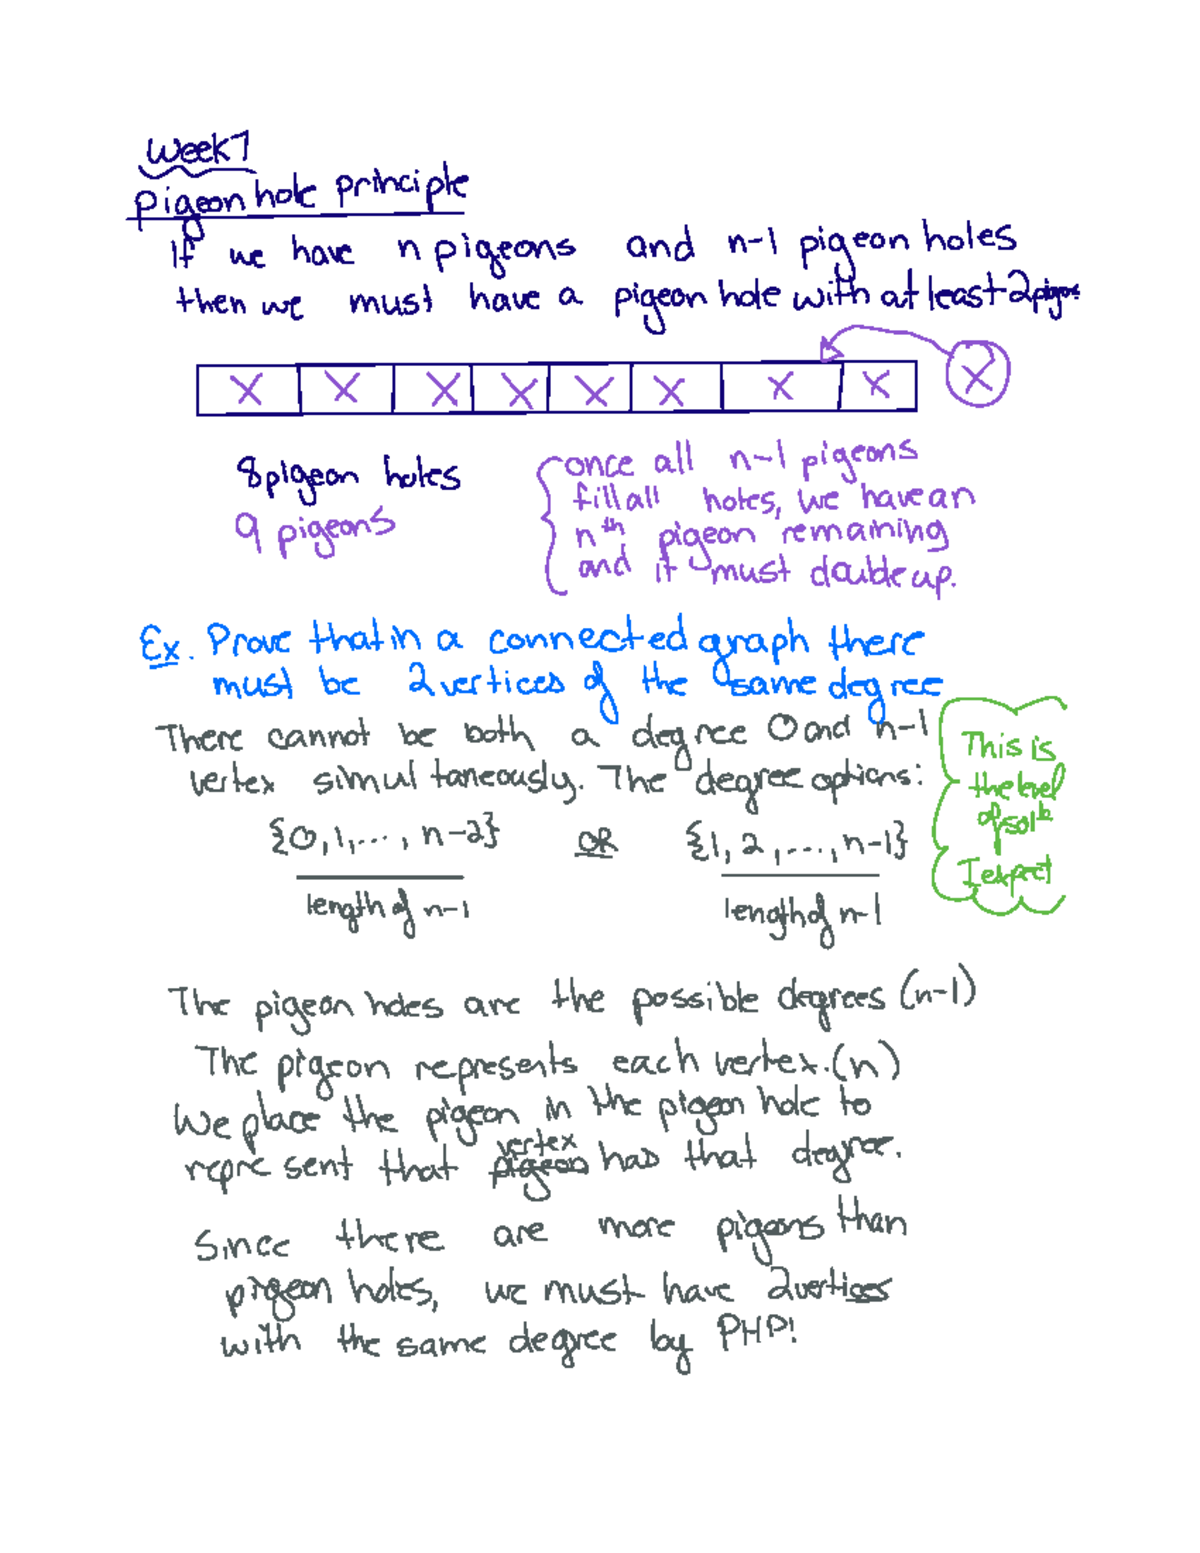 Week 7
Pigeon hole principle
If we have n pigeons and n-1 pigeon holes
then we must have a pigeon hole with at least 2
X X X X X X X X X
8 pigeon holes
9 pigeons
once all n-1 pigeons
fill all holes, we have an
nth pigeon remaining
and it must double up.
Ex. Prove that in a connected graph there
must be 2 vertices of the same degree
There cannot be both a degree 0 and n-1
vertex simultaneously. The degree options:
{0, 1, ..., n-2} OR {1, 2, ..., n-1}
length of n-1 length of n-1
This is
the level
of
I expect
The pigeon holes are the possible degrees (n-1)
The pigeon represents each vertex. (n)
We place the pigeon in the pigeon hole to
represent that pigeon vertex has that degree.
Since there are more pigeons than
pigeon holes, we must have 2 vertices
with the same degree by PHP!